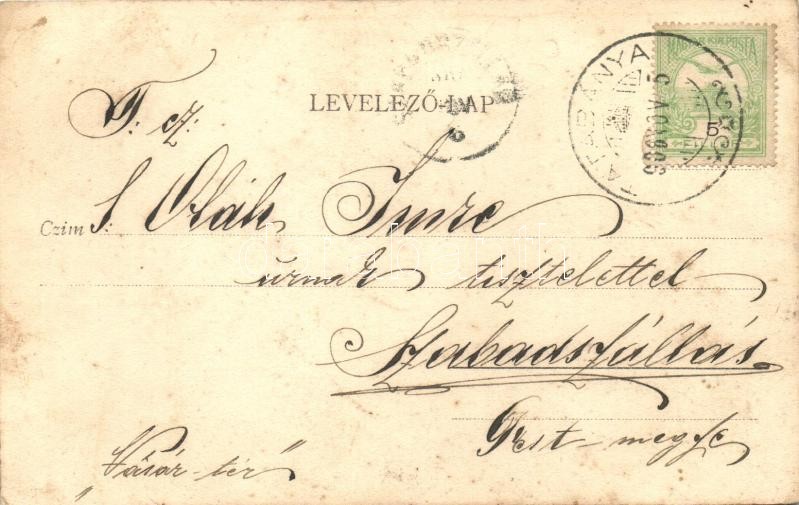 MAGYAR KIR. POSTA
TATABÁNYA
LEVELEZŐ-LAP
T. cz.
Czim S. Oláh Imre
úrnak tisztelettel
Szabadszállás
Pest-megye
"Vásár-tér"